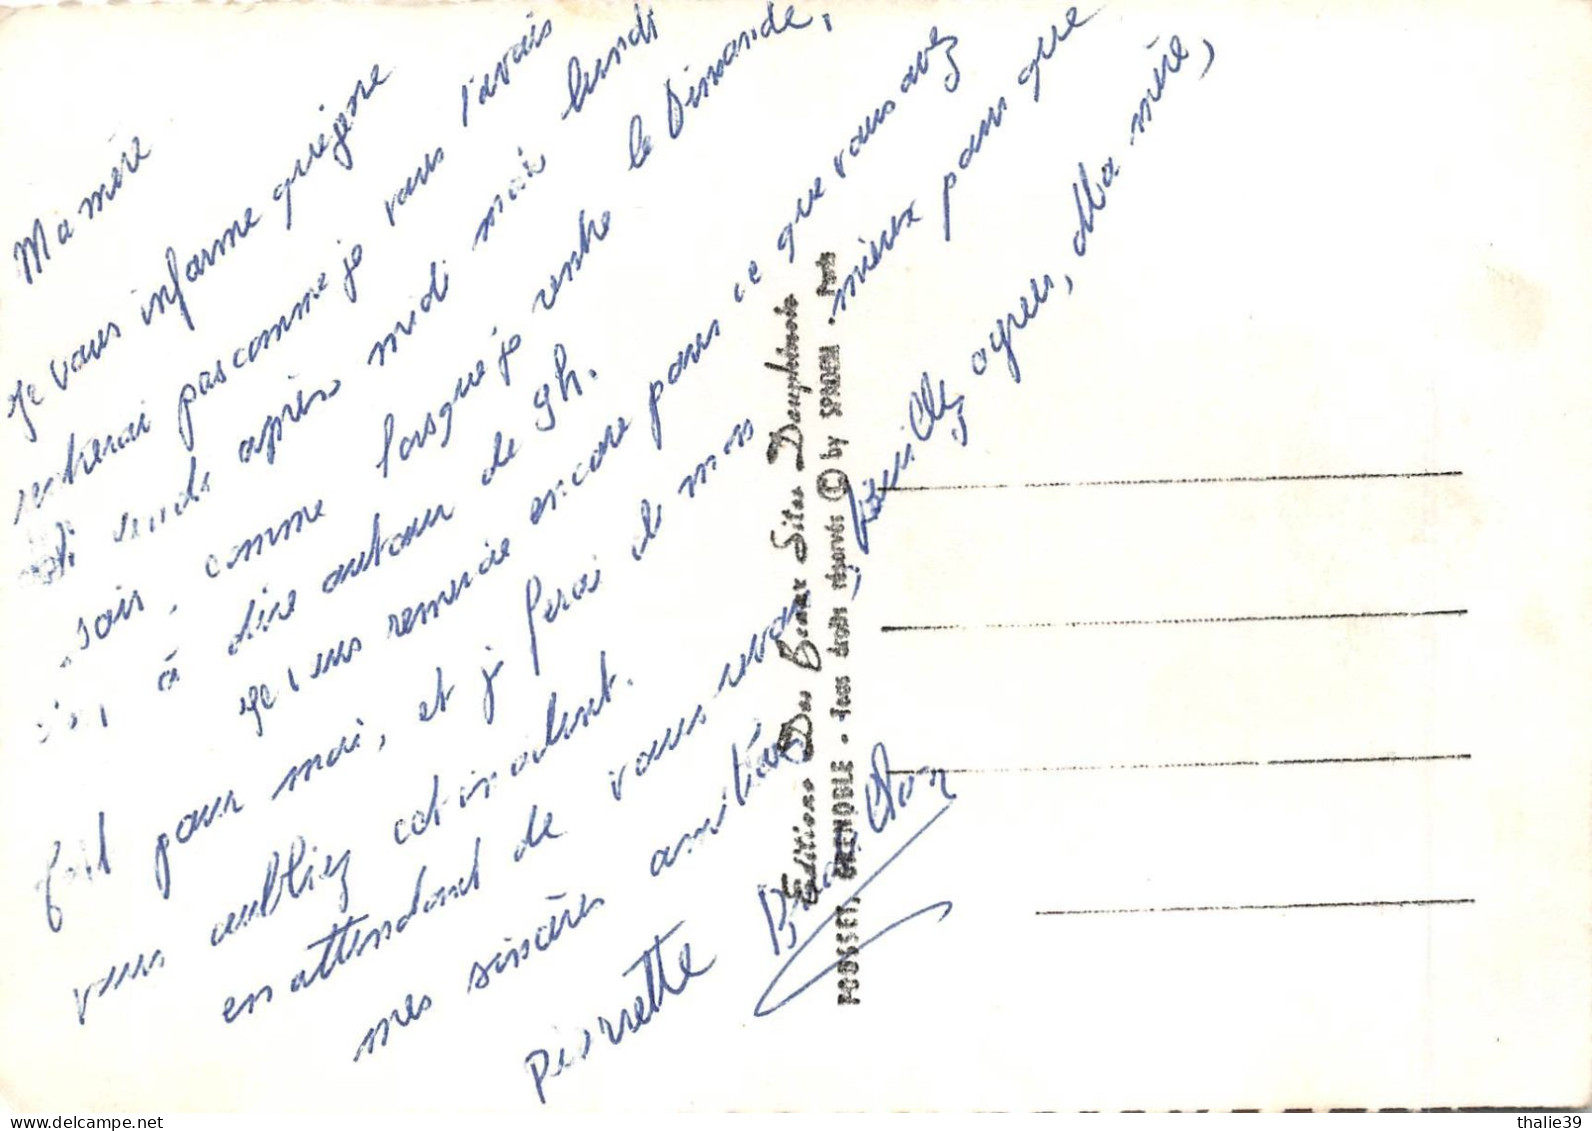 Ma mère
Je vous informe que je ne
rentrerai pas comme je vous l'avais
dit après midi mais lundi
soir, comme lorsque je rentre le Dimanche,
à dire autour de 9h.
Je vous remercie encore pour ce que vous avez
fait pour moi, et je ferai de mon mieux pour que
vous oubliez cet incident.
en attendant de vous revoir, veuillez agréer, Ma mère,
mes sincères amitiés
Pierrette
Editions Des Beaux Sites Dauphinois
POUSSET, GRENOBLE - Tous droits réservés © by SPADEM - Paris
thalie39